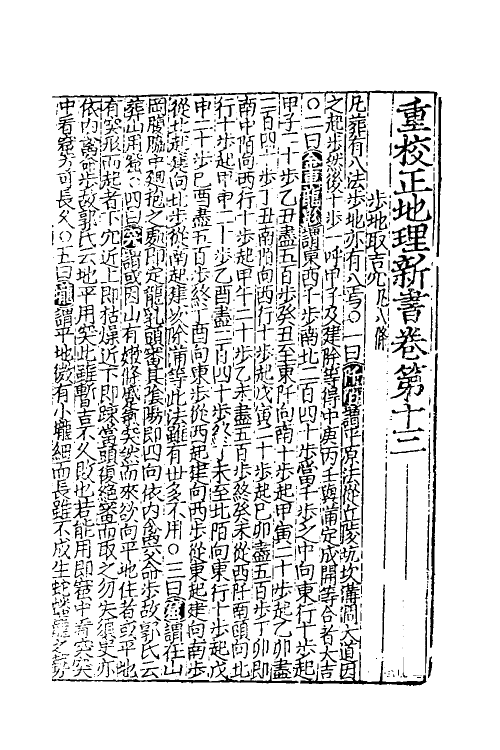 重校正地理新書卷第十三
步地取吉穴凡八條
凡葬有八法步地亦有八焉〇一曰 謂平原法從丘陵坑坎溝澗大道因
之起步然後十步一呼甲子及建除等得中庚丙壬與滿定成開等合者大吉
〇二曰金車龍影謂東西千步南北二百四十步當千步之中向東行十步起
甲子二十步乙丑盡五百步癸丑至東阡向南十步起甲寅二十步起乙卯盡
二百四十步丁丑南陌向西行十步起戊寅二十步起己卯盡五百步丁卯即
南中陌向西行十步起甲午二十步乙未盡五百步終癸未從西阡南頭向北
行十步起甲申二十步乙酉盡二百四十步終 未至北陌向東行十步起戊
申二十步己酉盡五百步終丁酉向東步從西起建向西步從東起建向南步
從北起建向北步從南起建以除滿等此法雖有世多不用〇三曰 謂在山
岡腰脇中迴抱之處即定龍乳頭審其陰陽即四向依內禽交命步故郭氏云
葬山用 四曰 謂或因山有嫩條 突然而來欲向平地住者或平地
有突形而起者下穴近上即枯燥近下即 當頭復絕 而取之勿失須史亦
依內禽命步故郭氏云地平用突此雖暫吉不久敗也若能用即 中看突突
中看 方可長久〇五曰 謂平地微有小壠細而長雖不成生蛇 之勢